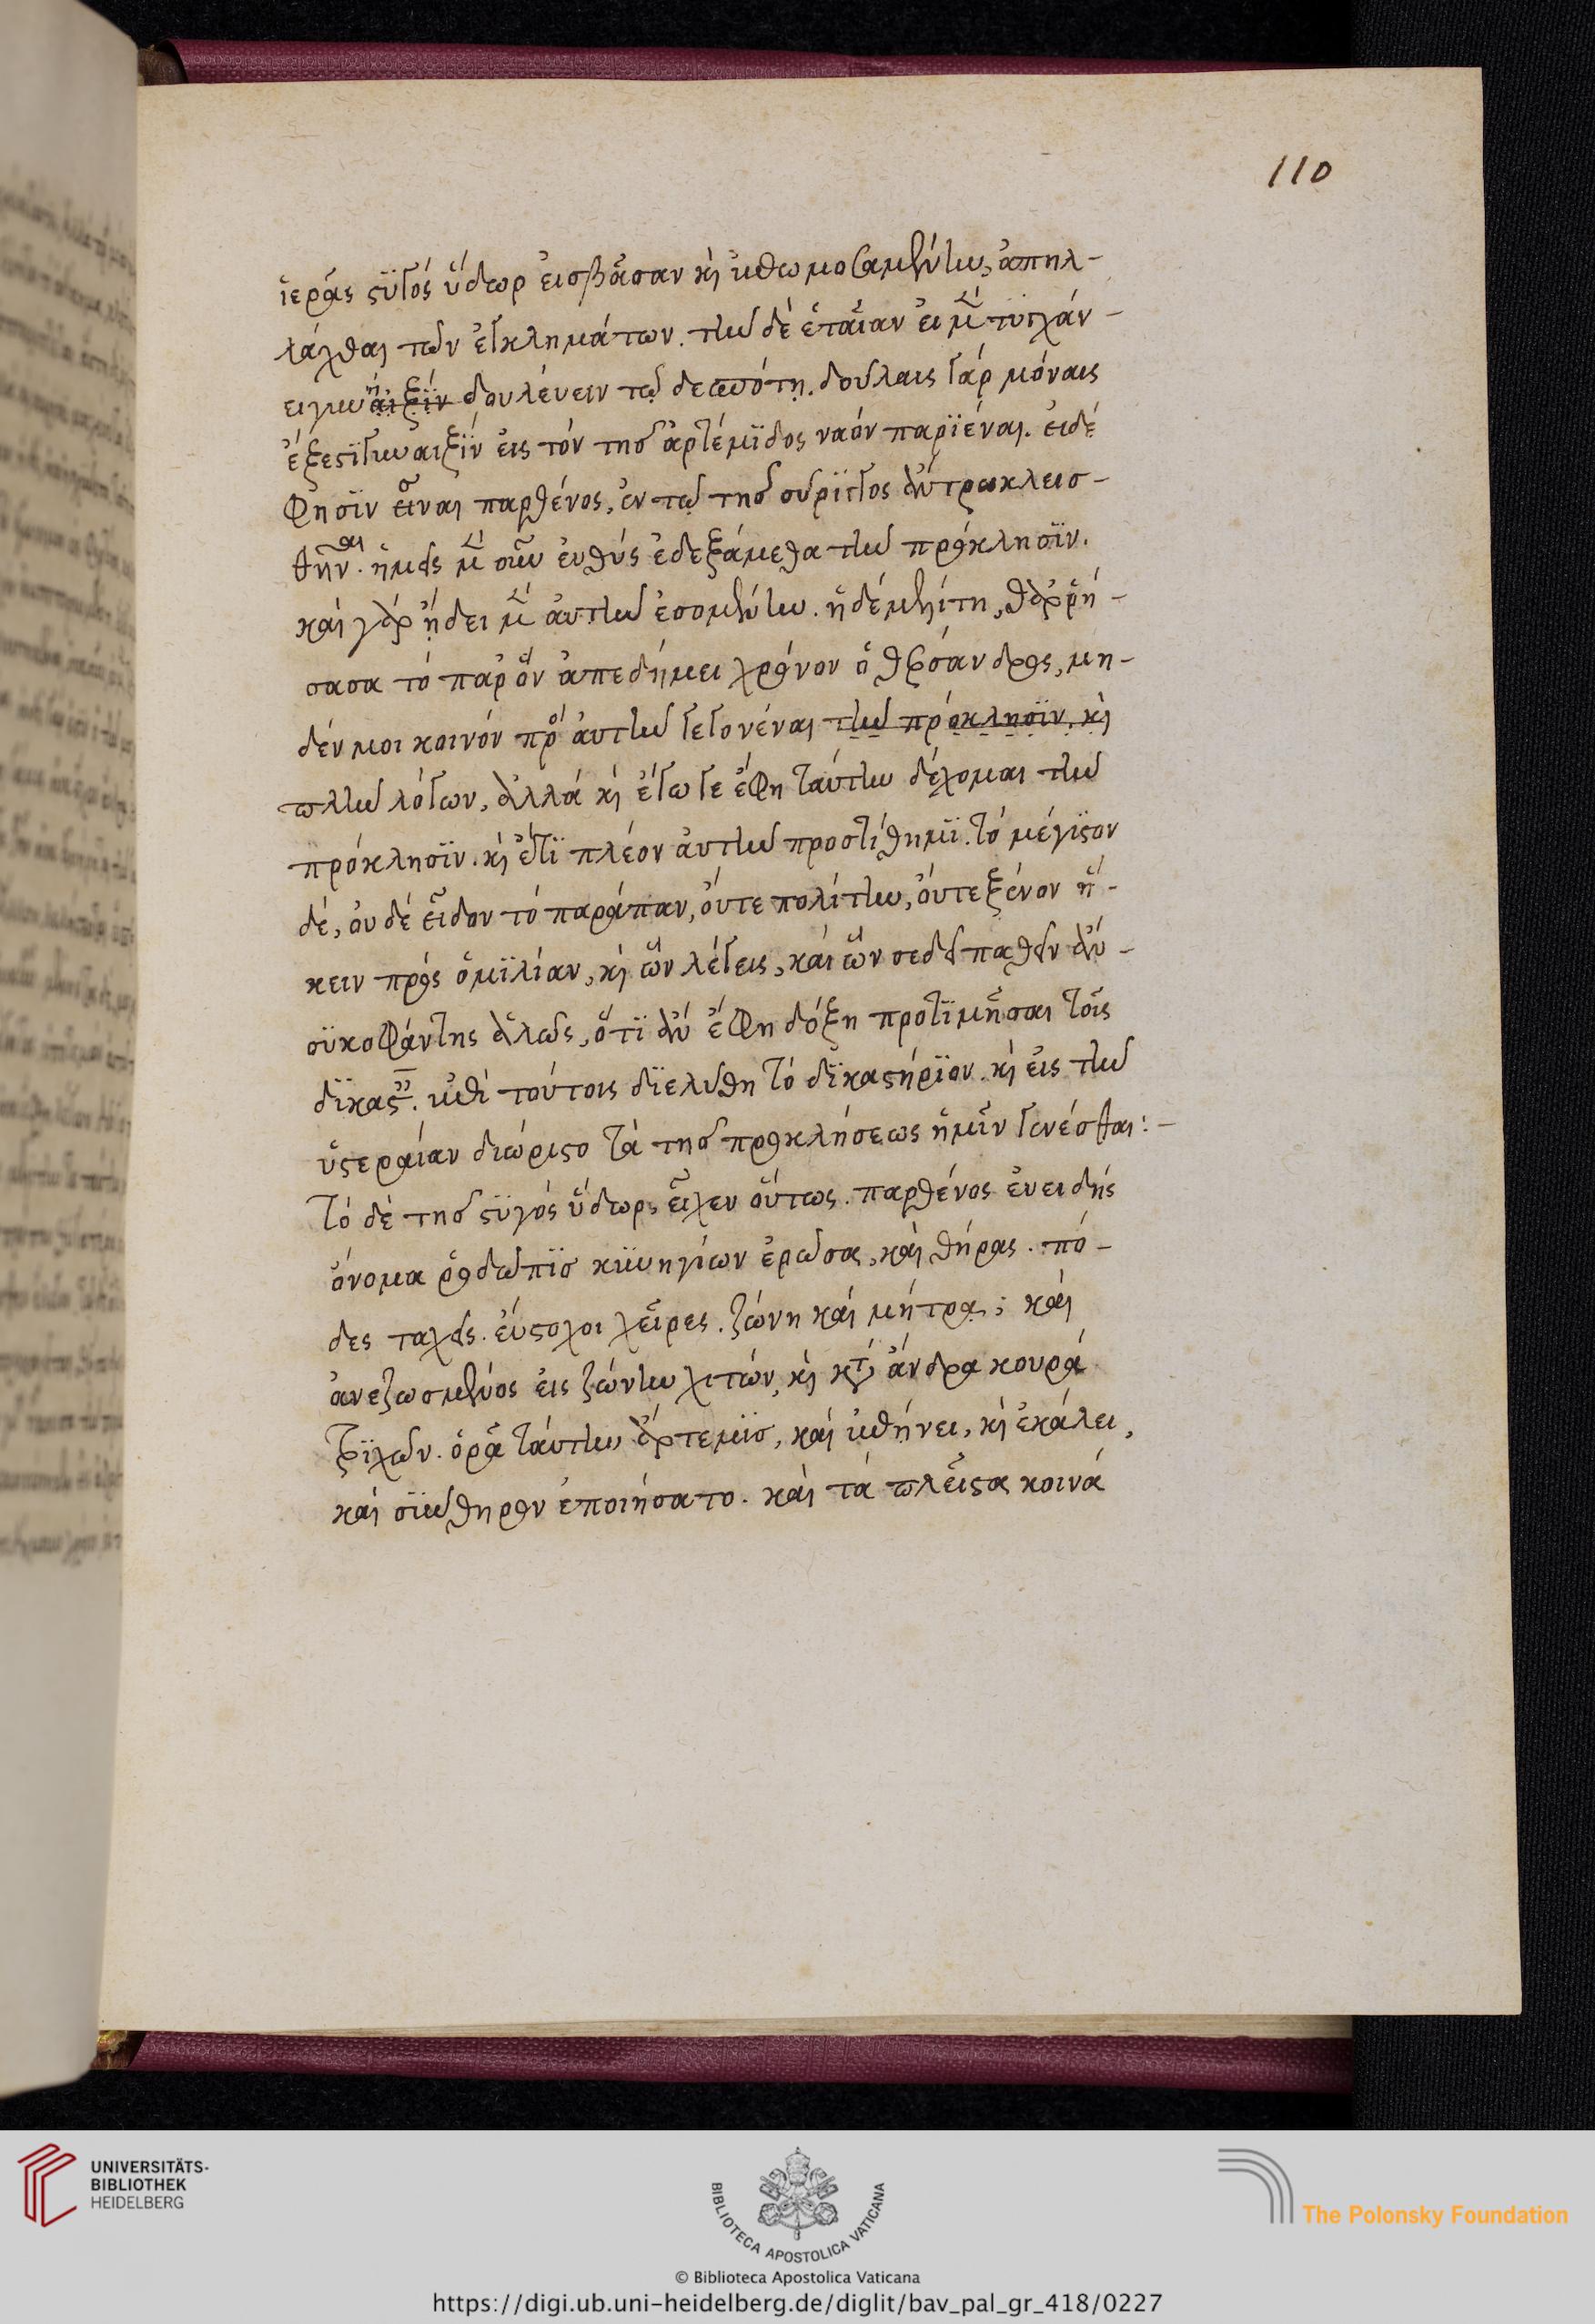 110
ἱερᾶς στυγός ὕδωρ εἰσβᾶσαν καὶ ἐπομοσαμένην, ἀπηλ-
λάχθαι τῶν ἐγκλημάτων. τὴν δὲ ἑταίαν εἰ μὲν τυγχάν-
ει γυναιξὶν δουλέυειν τῷ δεσπότῃ. δούλαις γάρ μόναις
ἔξεστι γυναιξὶν εἰς τόν τῆς ἀρτέμιδος ναόν παριέναι. εἰ δέ
φησιν εἶναι παρθένος, ἐν τῷ τῆς συριγγος ἄντρω κλεισ-
θῆναι. ἡμεῖς μὲν οὖν ἐυθύς ἐδεξάμεθα τὴν πρόκλησιν.
καί γάρ ᾔδει μὲν ἀυτὴν ἐσομένην. ἡ δέ μελίτη, θαρρή-
σασα τό παρ ὃν ἀπεδήμει χρόνον ὁ θέρσανδρος, μη-
δέν μοι κοινόν πρὸς ἀυτὴν γεγονέναι τὴν πρόκλησιν, καὶ
πλὴν λόγων, ἀλλά καὶ ἔγωγε ἔφη ταύτην δέχομαι τὴν
πρόκλησιν. καὶ ἔτι πλέον ἀυτὴν προστίθημι. τό μέγιστον
δέ, ὀυδέ εἶδον τό παράπαν, ὄυτε πολίτην, ὄυτε ξένον ἥ-
κειν πρός ὁμιλίαν, καὶ ὧν λέγεις, καί ὧν σε δεῖ παθεῖν ἄν
συκοφάντης ἁλῶς, ὅτι ἄν ἔφη δόξη προτιμῆσαι τοῖς
δικασταῖς. ἐπὶ τούτοις διελύθη τό δικαστήριον. καὶ εἰς τὴν
ὑστεραίαν διώριστο τὰ τῆς προκλήσεως ἡμῖν γενέσθαι:-
Τό δέ τῆς στυγός ὕδωρ, εἶχεν οὕτως. παρθένος ἐυειδής
ὄνομα ροδῶπις κυνηγίων ἐρῶσα, καί θήρας. πό-
δες ταχεῖς. ἔυστοχοι χεῖρες. ζώνη καί μήτρα; καί
ἀνεζωσμένος εἰς ζώνην χιτών, καὶ κατ ἄνδρα κουρά
τριχῶν. ὁρᾶ ταύτην ἄρτεμις, καί ἐπήνει, καὶ ἐκάλει,
καί σύνθηρον ἐποιήσατο. καί τά πλεῖστα κοινά
UNIVERSITÄTS-
BIBLIOTHEK
HEIDELBERG
BIBLIOTECA APOSTOLICA VATICANA
The Polonsky Foundation
© Biblioteca Apostolica Vaticana
https://digi.ub.uni-heidelberg.de/diglit/bav_pal_gr_418/0227